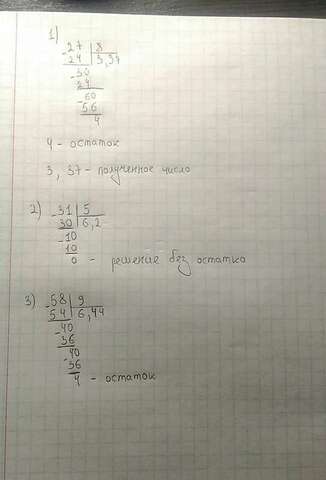 1)
-27 | 8
24 | 3,37
-30
24
-60
56
4
4 - остаток
3, 37 - полученное число
2) -31 | 5
30 | 6,2
-10
10
0 - решение без остатка
3) -58 | 9
54 | 6,44
-40
36
-40
36
4 - остаток